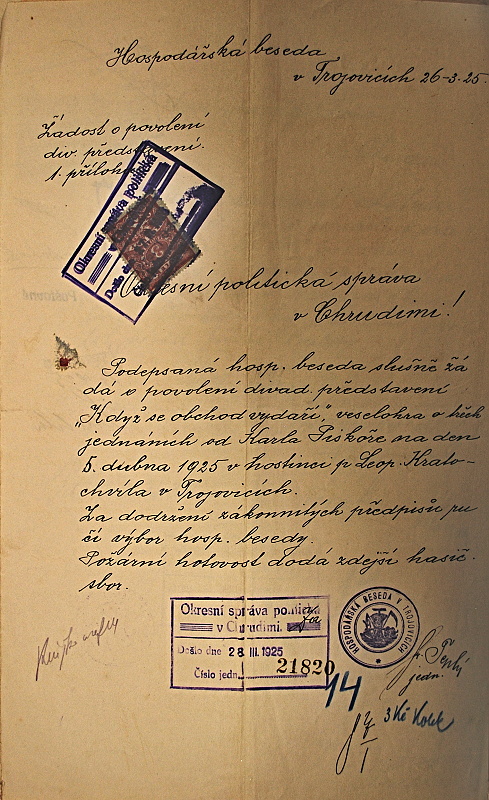 Hospodářská beseda
v Trojovicích 26-3-25.
Žádost o povolení
div. představení.
1. příloha
Okresní správa politická
Došlo dne
Okresní politická správa
v Chrudimi!
Podepsaná hosp. beseda slušně žá
dá o povolení divad. představení
„Když se obchod vydaří" veselohra o třech
jednáních od Karla Piskoře na den
5. dubna 1925 v hostinci p Leop. Krato-
chvíla v Trojovicích.
Za dodržení zákonnitých předpisů ru
čí výbor hosp. besedy.
Požární hotovost dodá zdejší hasič.
sbor.
Okresní správa politická
v Chrudimi.
Došlo dne 28 III. 1925
Číslo jedn. 21820
HOSPODÁŘSKÁ BESEDA V TROJOVICÍCH
Teplý
jedn.
14
3 Kč Kolek